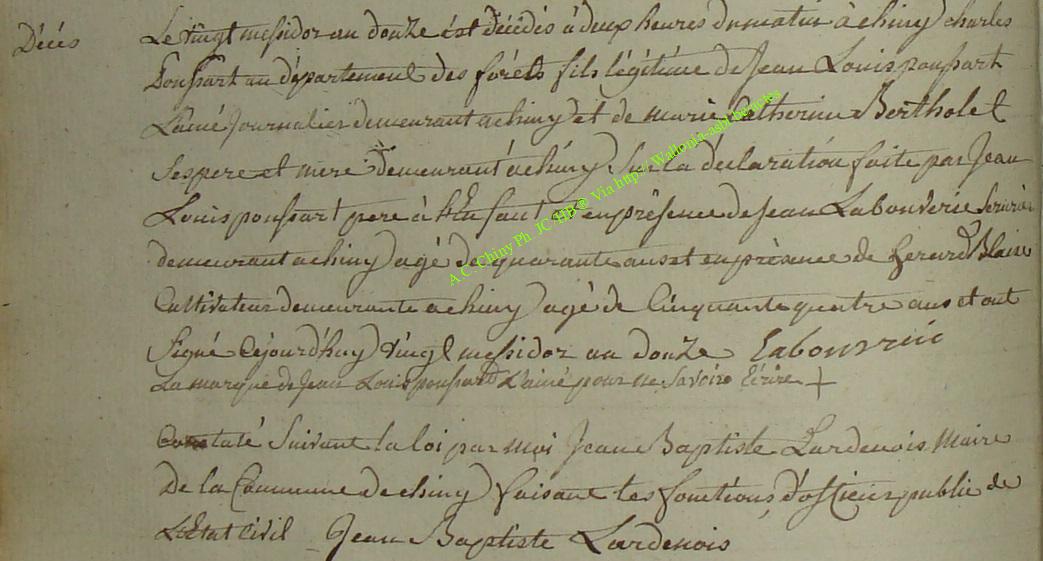 Décés
Le vingt messidor an douze est décédés à deux heures du matin à chiny charles
Poussart au département des forêts fils légitime de Jean Louis poussart
L'ainé Journalier demeurant a chiny et de marie Catherine Bertholet
Ses pere et mere demeurant a chiny Sur La déclaration faite par Jean
Louis poussart pere à L'Enfant et en présence de Jean Labouverie Serurier
demeurant a chiny agé de quarante ans et en présence de Gerard Blaise
Cultivateur demeurante a chiny agé de Cinquante quatre ans et ont
Signé Cejourd'huy vingt messidor an douze Labouvrie
La marque de Jean Louis poussart L'ainé pour ne Savoire Ecrire +
Constaté Suivant la loi par moi Jean Baptiste Lardenois Maire
De la Commune de chiny faisant les fonctions d'officier public de
L'Etat Civil Jean Baptiste Lardenois
A.C. Chiny Ph. JC HB® Via http://Wallonia-asbl.be/actes